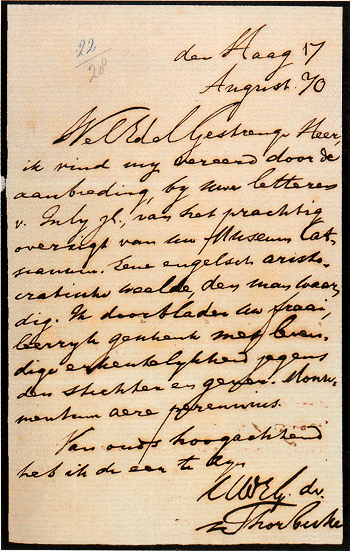 22
20
den Haag 17
August. 70
WelEdelGestrenge Heer,
ik vind my vereerd door de
aanbieding, by uwe letteren
v. July jl., van het prachtig
overzigt van uw Museum Cat-
sianum. Eene engelsch aristo-
cratische weelde, den man waar-
dig. Ik doorblader uw fraai,
leerryk geschenk met leven-
dige erkentelykheid jegens
den stichter en gever. Monu-
mentum aere perennius.
Van ouds hoogachtend
heb ik de eer te zyn
UWEG. dv.
Thorbecke